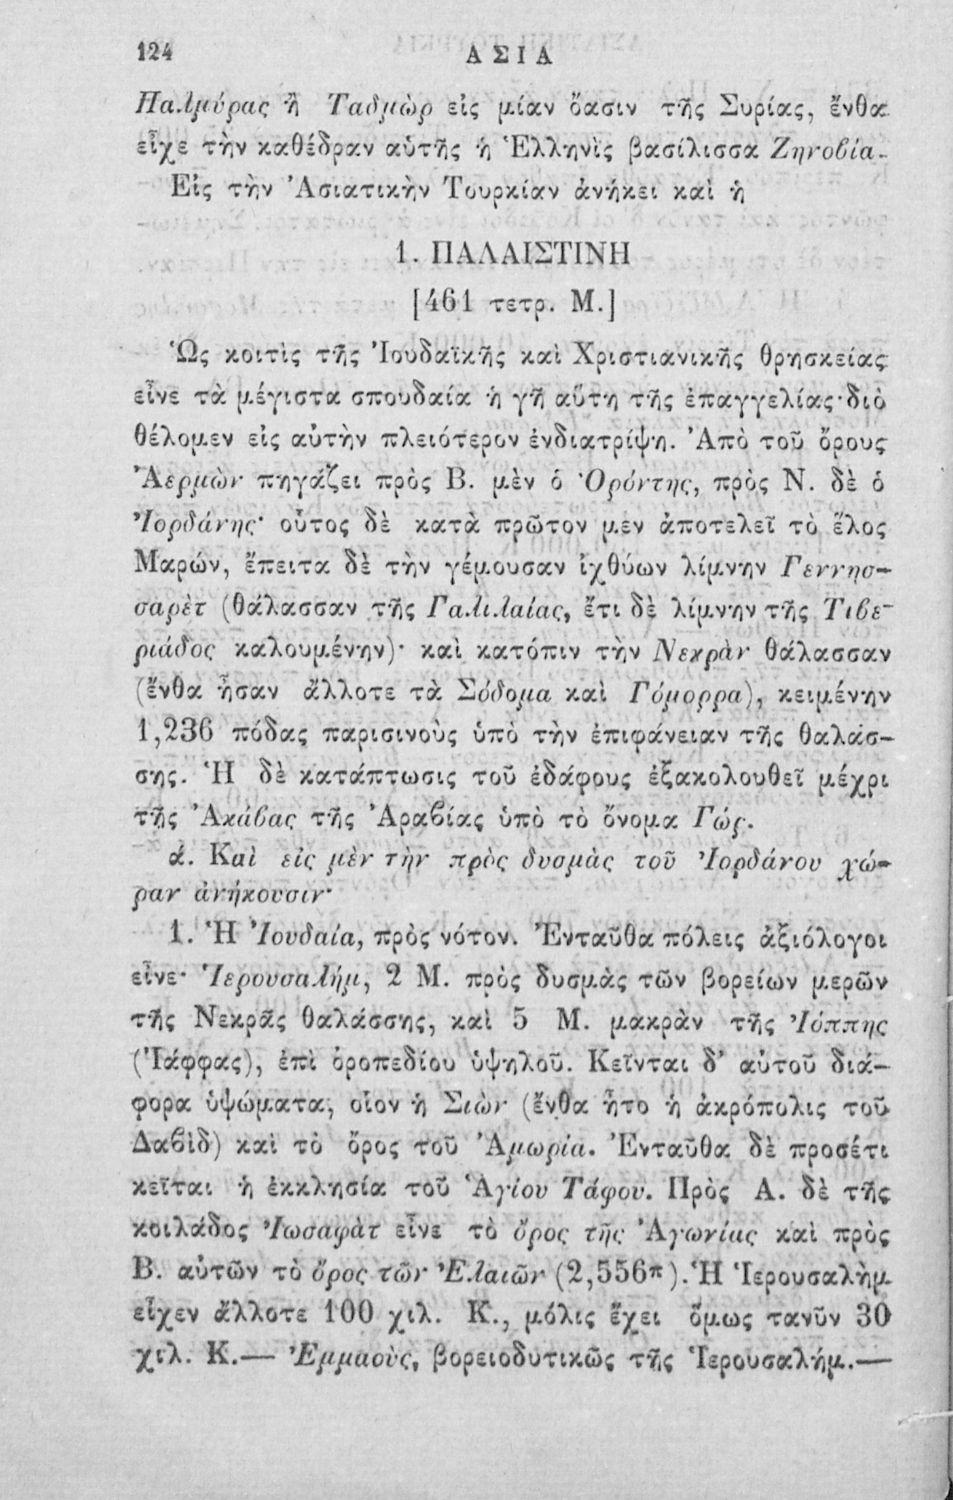 124 ΑΣΙΑ
Παλμύρας ἢ Ταδμὼρ εἰς μίαν ὄασιν τῆς Συρίας, ἔνθα
εἶχε τὴν καθέδραν αὐτῆς ἡ Ἑλληνὶς βασίλισσα Ζηνοβία.
Εἰς τὴν Ἀσιατικὴν Τουρκίαν ἀνήκει καὶ ἡ
1. ΠΑΛΑΙΣΤΙΝΗ
[461 τετρ. Μ.]
Ὡς κοιτὶς τῆς Ἰουδαϊκῆς καὶ Χριστιανικῆς θρησκείας
εἶνε τὰ μέγιστα σπουδαία ἡ γῆ αὕτη τῆς ἐπαγγελίας· διὸ
θέλομεν εἰς αὐτὴν πλειότερον ἐνδιατρίψῃ. Ἀπὸ τοῦ ὄρους
Ἀερμὼν πηγάζει πρὸς Β. μὲν ὁ Ὀρόντης, πρὸς Ν. δὲ ὁ
Ἰορδάνης· οὗτος δὲ κατὰ πρῶτον μὲν ἀποτελεῖ τὸ ἕλος
Μαρών, ἔπειτα δὲ τὴν γέμουσαν ἰχθύων λίμνην Γεννησ-
σαρὲτ (θάλασσαν τῆς Γαλιλαίας, ἔτι δὲ λίμνην τῆς Τιβε-
ριάδος καλουμένην)· καὶ κατόπιν τὴν Νεκρὰν θάλασσαν
(ἔνθα ἦσαν ἄλλοτε τὰ Σόδομα καὶ Γόμορρα), κειμένην
1,236 πόδας παρισινοὺς ὑπὸ τὴν ἐπιφάνειαν τῆς θαλάσ-
σης. Ἡ δὲ κατάπτωσις τοῦ ἐδάφους ἐξακολουθεῖ μέχρι
τῆς Ἀκάβας τῆς Ἀραβίας ὑπὸ τὸ ὄνομα Γώρ.
ά. Καὶ εἰς μὲν τὴν πρὸς δυσμὰς τοῦ Ἰορδάνου χώ-
ραν ἀνήκουσιν·
1. Ἡ Ἰουδαία, πρὸς νότον. Ἐνταῦθα πόλεις ἀξιόλογοι
εἶνε· Ἱερουσαλήμ, 2 Μ. πρὸς δυσμὰς τῶν βορείων μερῶν
τῆς Νεκρᾶς θαλάσσης, καὶ 5 Μ. μακρὰν τῆς Ἰόππης
(Ἰάφφας), ἐπὶ ὀροπεδίου ὑψηλοῦ. Κεῖνται δ’ αὐτοῦ διά-
φορα ὑψώματα, οἷον ἡ Σιὼν (ἔνθα ἦτο ἡ ἀκρόπολις τοῦ
Δαβὶδ) καὶ τὸ ὄρος τοῦ Ἀμωρία. Ἐνταῦθα δὲ προσέτι
κεῖται ἡ ἐκκλησία τοῦ Ἁγίου Τάφου. Πρὸς Α. δὲ τῆς
κοιλάδος Ἰωσαφὰτ εἶνε τὸ ὄρος τῆς Ἀγωνίας καὶ πρὸς
Β. αὐτῶν τὸ ὄρος τῶν Ἐλαιῶν (2,556π). Ἡ Ἱερουσαλὴμ
εἶχεν ἄλλοτε 100 χιλ. Κ., μόλις ἔχει ὅμως τανῦν 30
χιλ. Κ.— Ἐμμαοὺς, βορειοδυτικῶς τῆς Ἱερουσαλήμ.—